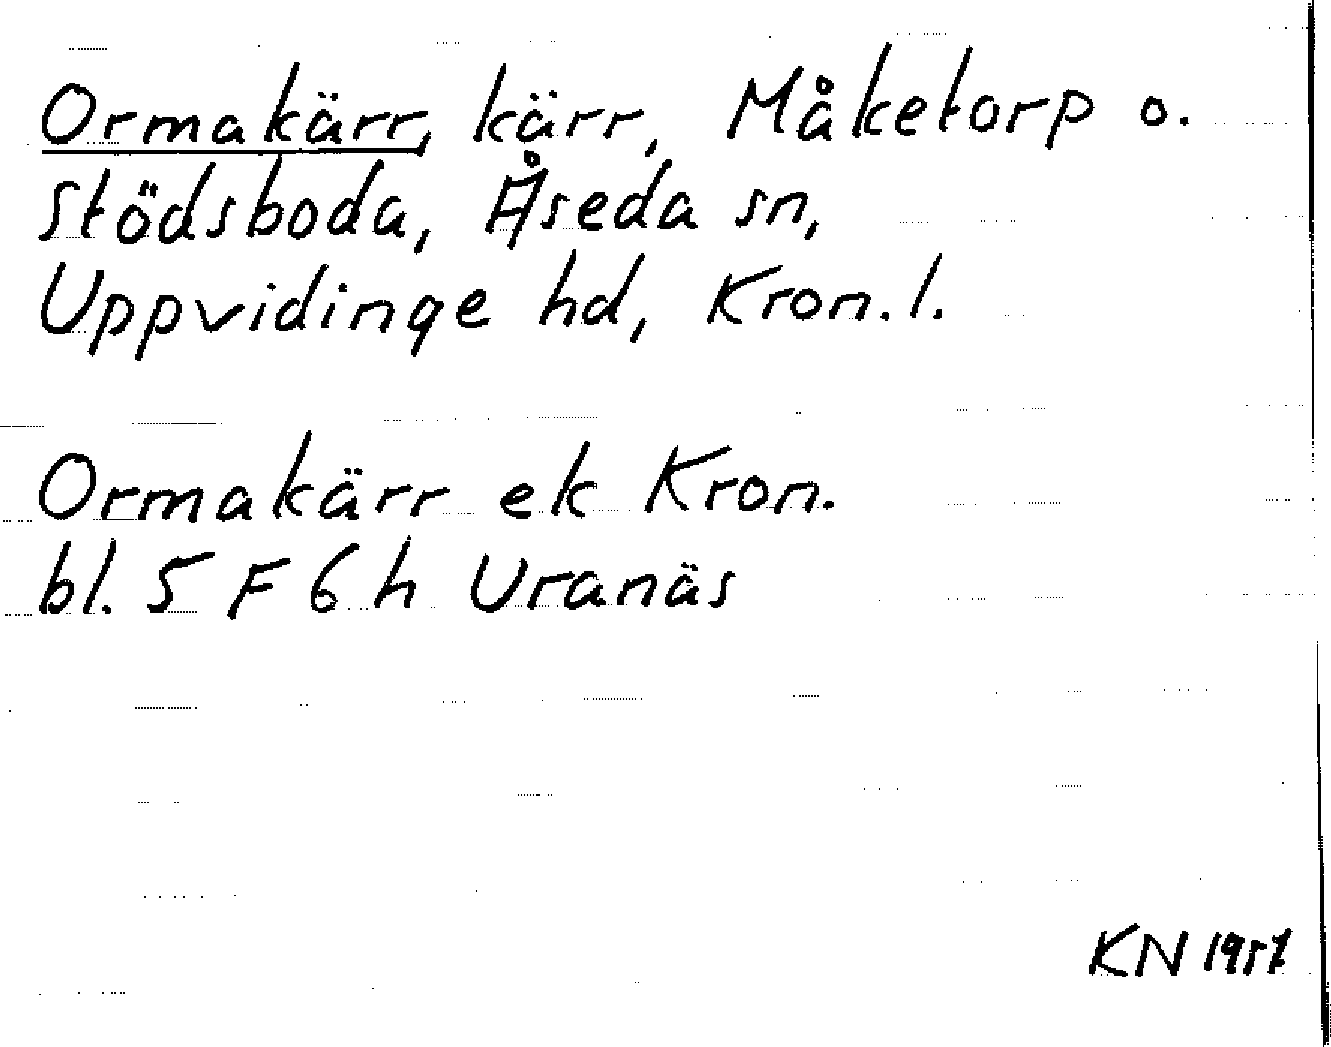 Ormakärr, kärr, Måketorp o.
Stödsboda, Åseda sn,
Uppvidinge hd, Kron. l.
Ormakärr ek Kron.
bl. 5 F 6 h Uranäs
KN 1957